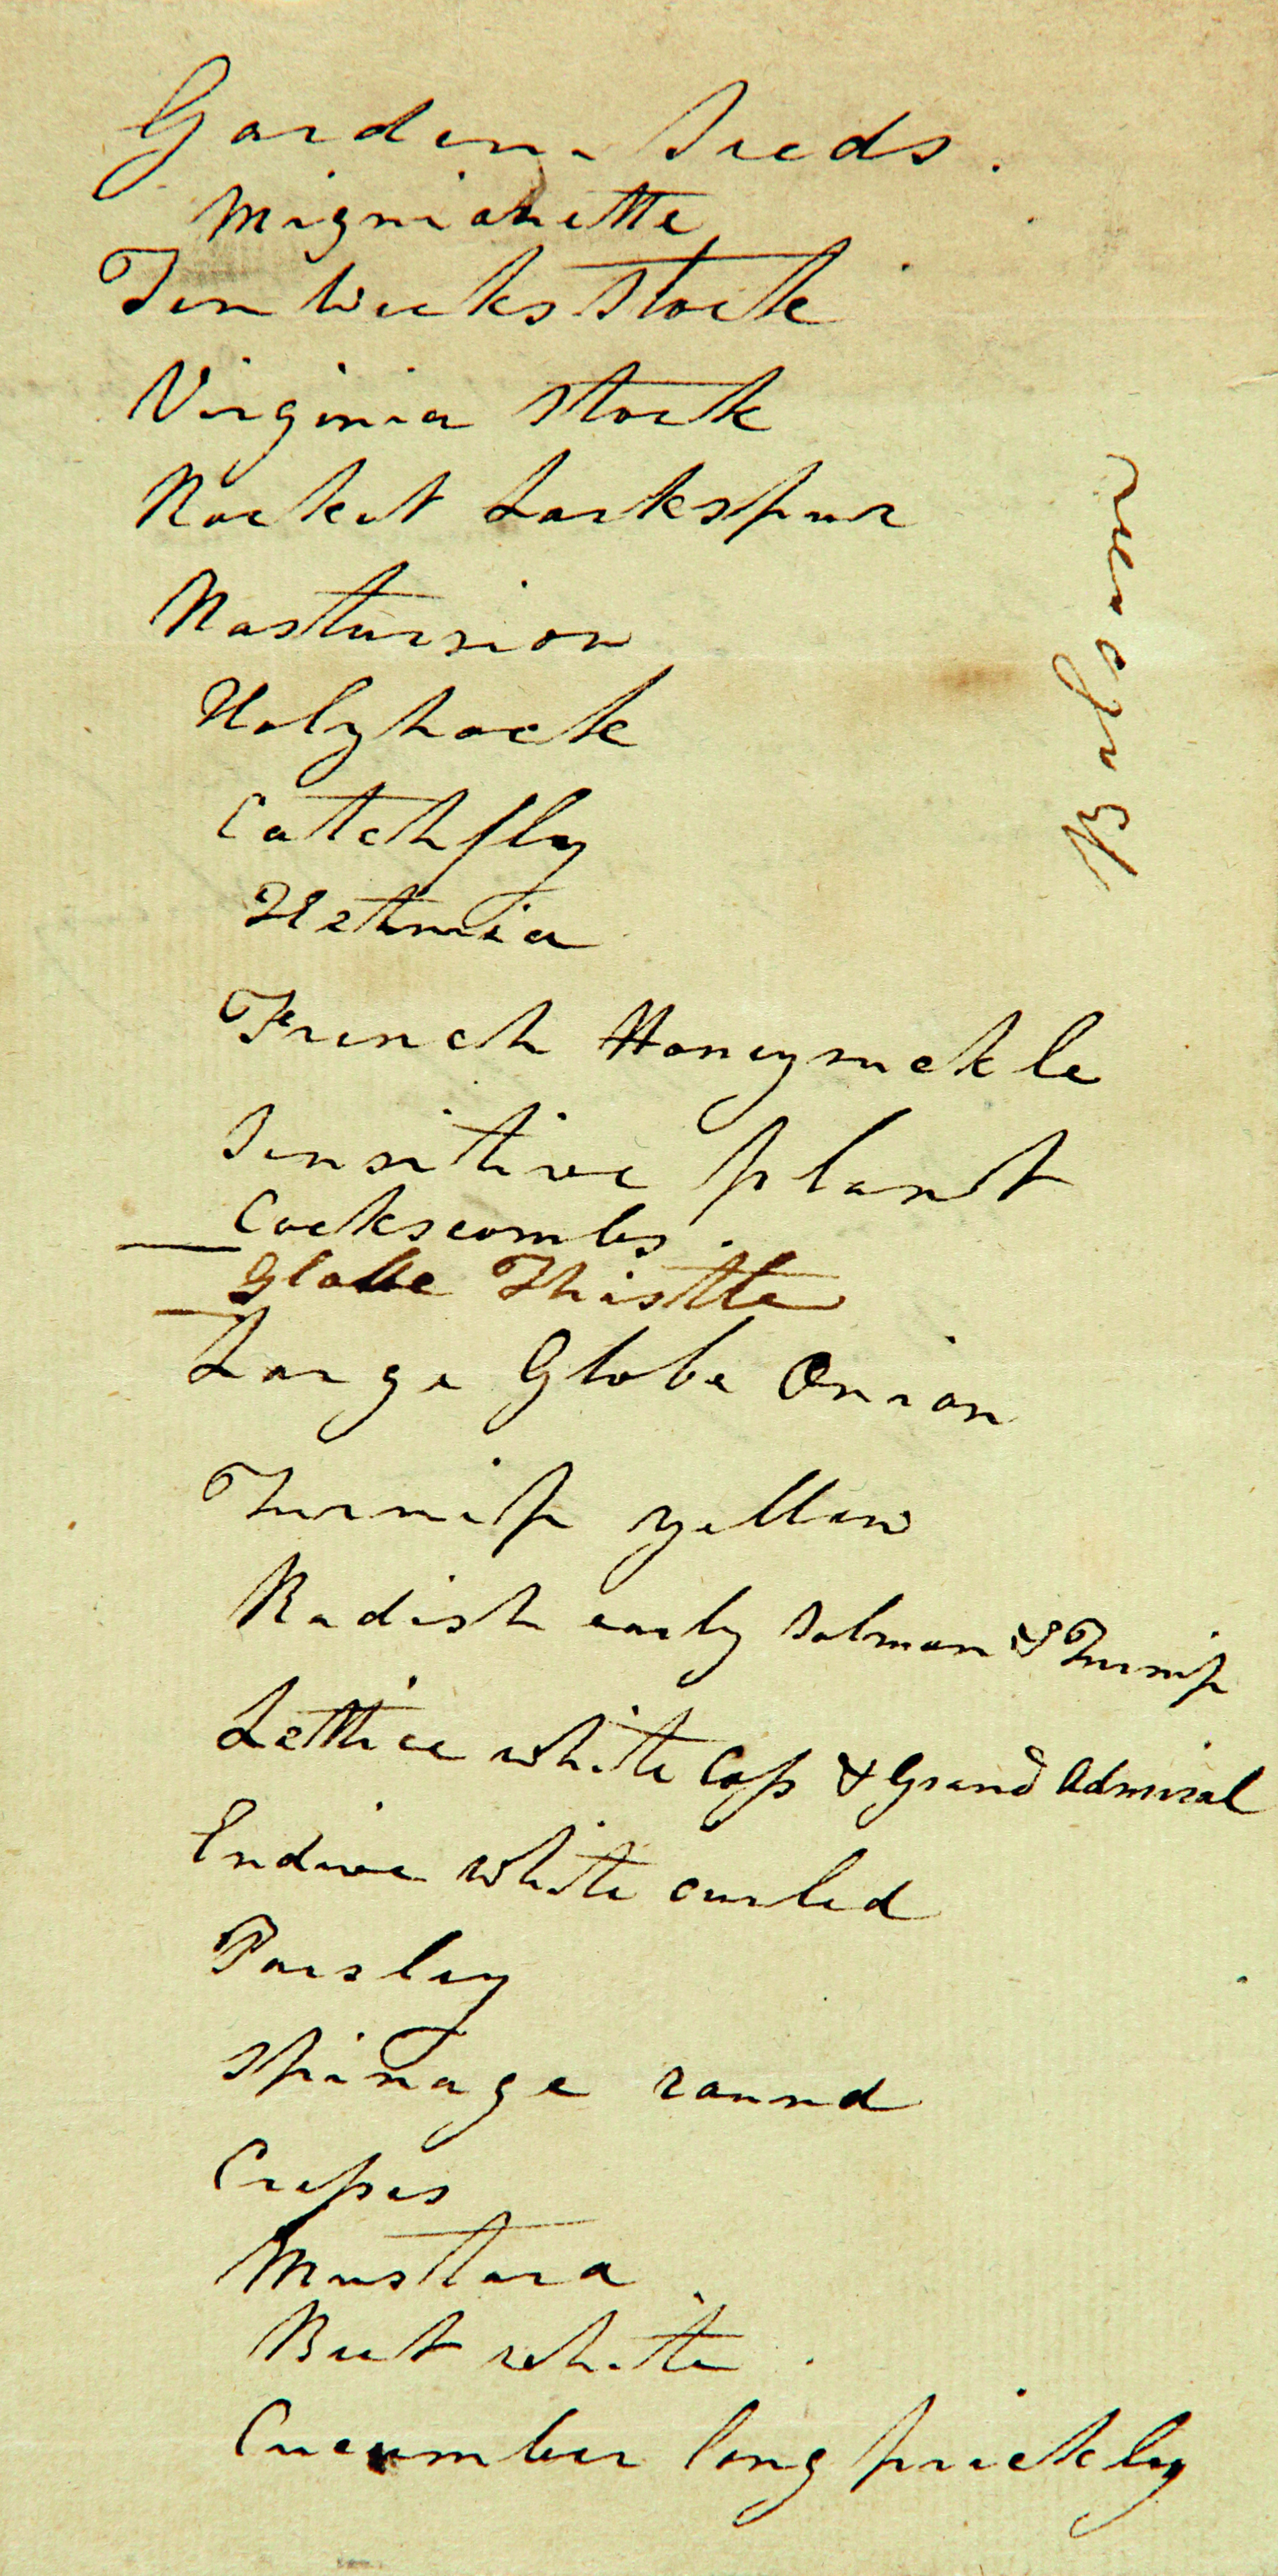 Garden Seeds.
Mignionette
Ten Weeks Stock
Virginia Stock
Rocket Larkspur
Nastursion
Holyhock
Catchfly
Hetmia
French Honeysuckle
Sensitive plant
Cockscombs.
Globe Thistle
Large Globe Onion
Turnip yellow
Radish early Salmon & Turnip
Lettice white Coss & Grand Admiral
Endive white curled
Parsley
Spinage round
Cresses
Mustard
Beet white
Cucumber long prickly